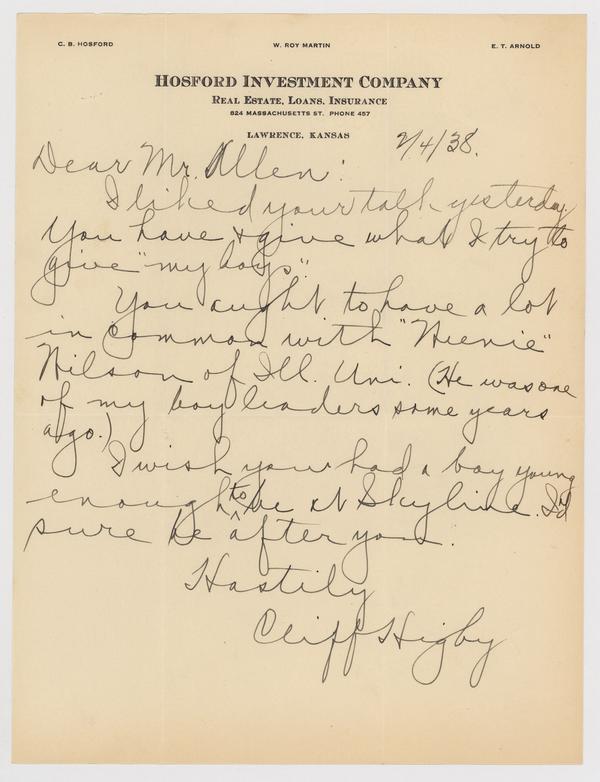 C. B. HOSFORD W. ROY MARTIN E. T. ARNOLD
HOSFORD INVESTMENT COMPANY
REAL ESTATE, LOANS, INSURANCE
824 MASSACHUSETTS ST. PHONE 457
LAWRENCE, KANSAS
2/4/38.
Dear Mr. Allen:
I liked your talk yesterday
You have & give what I try to
give "my boys".
You ought to have a lot
in common with "Heenie"
Wilson of Ill. Uni. (He was one
of my boy leaders some years
ago.)
I wish you had a boy young
enough to be at Skyline. I'd
sure be after you.
Hastily
Cliff Higby